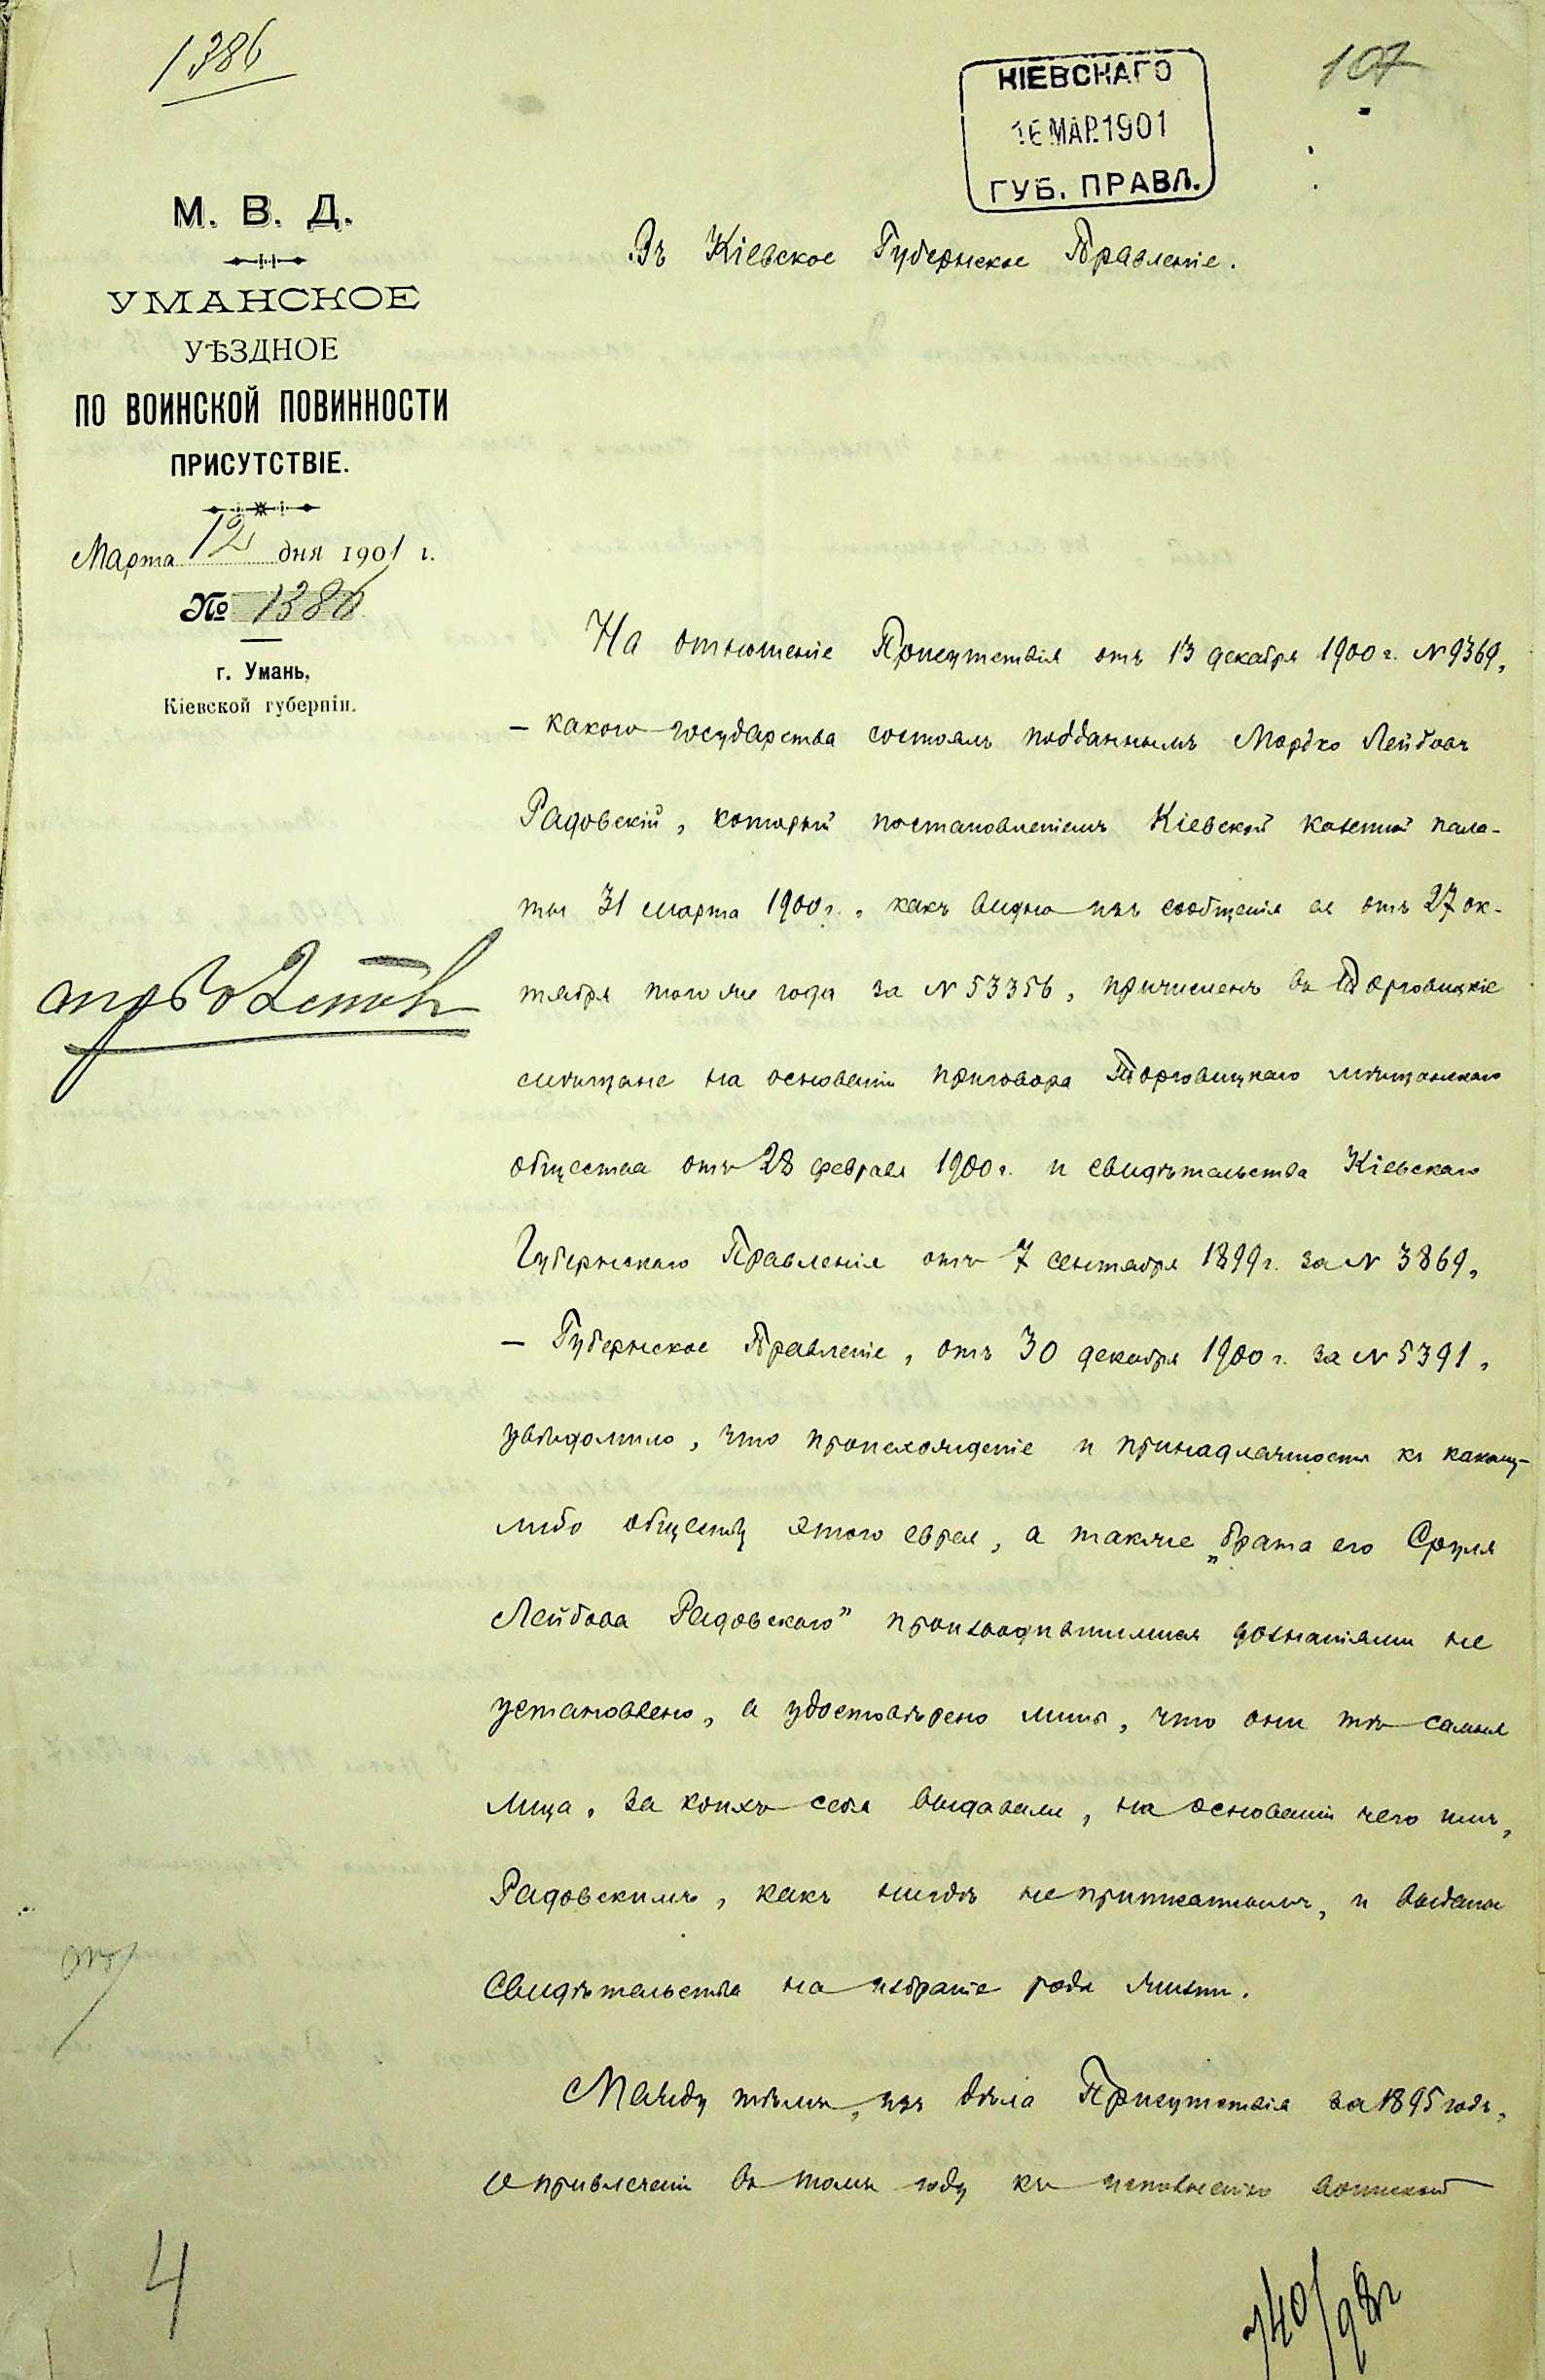 1386
107
КІЕВСКАГО
16 МАР. 1901
ГУБ. ПРАВЛ.
М. В. Д.
УМАНСКОЕ
УѢЗДНОЕ
ПО ВОИНСКОЙ ПОВИННОСТИ
ПРИСУТСТВІЕ.
Марта 12 дня 1901 г.
№ 1386
г. Умань,
Кіевской губерніи.
Въ Кіевское Губернское Правленіе.
На отношеніе Присутствія отъ 13 декабря 1900 г. № 9369,
– какого государства состоялъ подданнымъ Мордко Лейбовъ
Радовскій, который постановленіемъ Кіевской казенной пала-
ты 31 марта 1900 г., какъ видно изъ сообщенія ея отъ 27 ок-
тября того же года за № 53356, причисленъ въ Торговицкіе
мѣщане на основаніи приговора Торговицкаго мѣщанскаго
общества отъ 28 февраля 1900 г. и свидѣтельства Кіевскаго
Губернскаго Правленія отъ 7 сентября 1899 г. за № 3869,
– Губернское Правленіе, отъ 30 декабря 1900 г. за № 5391,
увѣдомило, что происхожденіе и принадлежность къ какому-
либо обществу этого еврея, а также „брата его Сруля
Лейбова Радовскаго” производившимися дознаніями не
установлено, а удостовѣрено лишь, что они тѣ самыя
лица, за коихъ себя выдавали, на основаніи чего имъ,
Радовскимъ, какъ нигдѣ не приписаннымъ, и выданы
свидѣтельства на избраніе рода жизни.
Между тѣмъ, изъ дѣла Присутствія за 1895 годъ,
о привлеченіи въ томъ году къ исполненію воинской
4
740/98 г